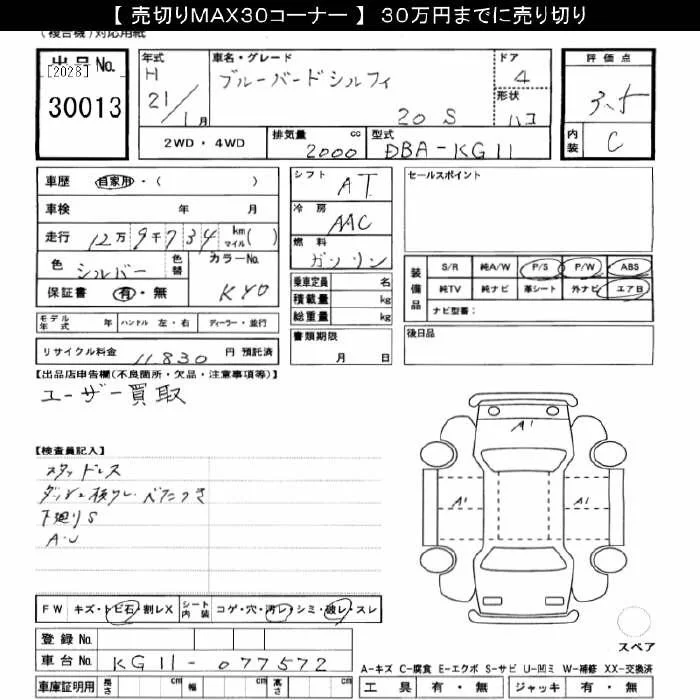 【 売切りMAX30コーナー 】 30万円までに売り切り
(複合機)対応用紙
出品No.
[2028]
30013
年式
H
21/1月
車名・グレード
ブルーバードシルフィ
20S
ドア
4
形状
ハコ
評価点
3.5
内装
C
2WD・4WD
排気量 cc
2000
型式
DBA-KG11
車歴 自家用・( )
車検 年 月
走行 12万9千734 km マイル( )
色 シルバー 色替
カラーNo.
KY0
保証書 有・無
モデル年式 年 ハンドル 左・右 ディーラー・並行
リサイクル料金 11,830 円 預託済
シフト
AT
冷房
AAC
燃料
ガソリン
乗車定員 名
積載量 kg
総重量 kg
書類期限
月 日
セールスポイント
装備品
S/R 純A/W P/S P/W ABS
純TV 純ナビ 革シート 外ナビ エアB
ナビ型番:
後日品
【出品店申告欄(不良箇所・欠品・注意事項等)】
ユーザー買取
【検査員記入】
スタッドレス
ベたつき
下廻りS
A・U
A1
A1
A1
FW キズ・トビ石・割レX
シート内装 コゲ・穴・汚レ・シミ・破レ・スレ
登録No.
車台No. KG11-077572
車庫証明用 長さ cm 幅 cm 高さ cm
スペア
A-キズ C-腐食 E-エクボ S-サビ U-凹ミ W-補修 XX-交換済
工具 有・無 ジャッキ 有・無